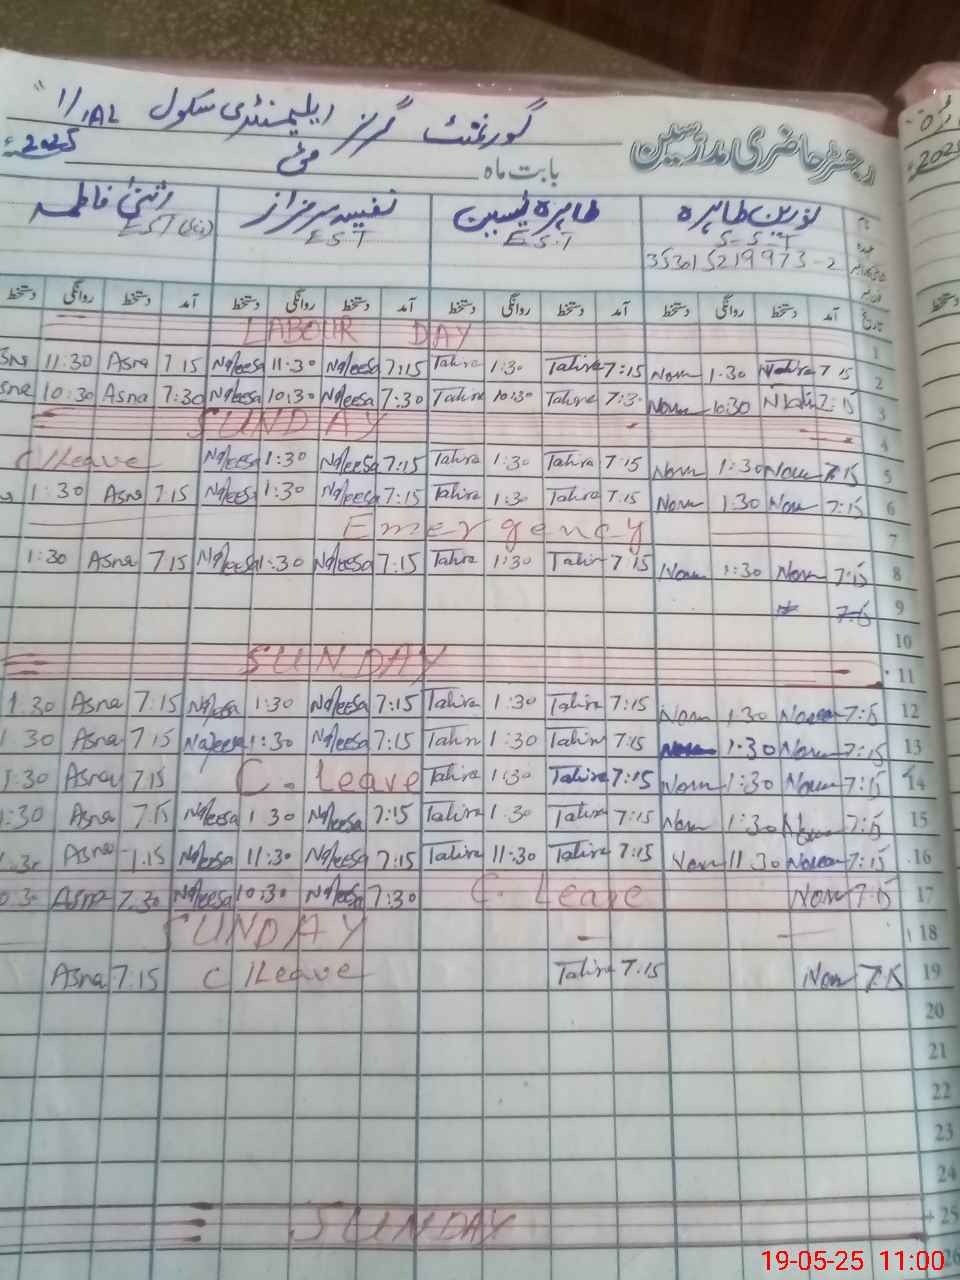 رجسٹر حاضری مدرسین گورنمنٹ گرلز ایلیمنٹری سکول 1/1AL
بابت ماہ مئی 2025
نورین طاہرہ طاہرہ یسمین نفیسہ سرفراز فاطمہ
S-S-T E.S.T E.S.T E.S.T
35301 5219973-2
تاریخ آمد دستخط روانگی دستخط آمد دستخط روانگی دستخط آمد دستخط روانگی دستخط آمد دستخط روانگی دستخط
LABOUR DAY 1
11:30 Asna 7 15 Nafeesa 11:30 Nafeesa 7:15 Tahira 1:30 Tahira 7:15 Noren 1.30 7 15 2
10:30 Asna 7:30 Nafeesa 10:30 Nafeesa 7:30 Tahira 10:30 Tahira 7:3 Noren 10:30 7:15 3
SUNDAY 4
C/Leave Nafeesa 1:30 Nafeesa 7:15 Tahira 1:30 Tahira 7:15 Noren 1:30 Noren 7:15 5
1:30 Asna 7 15 Nafeesa 1:30 Nafeesa 7:15 Tahira 1:30 Tahira 7.15 Noren 1:30 Noren 7:15 6
Emergency 7
1:30 Asna 7 15 Nafeesa 1:30 Nafeesa 7:15 Tahira 1:30 Tahira 7 15 Noren 1:30 Noren 7:15 8
7:15 9
10
SUNDAY 11
1.30 Asna 7:15 Nafeesa 1:30 Nafeesa 7:15 Tahira 1:30 Tahira 7:15 Noren 1:30 Noreen 7:15 12
1:30 Asna 7 15 Nafeesa 1:30 Nafeesa 7:15 Tahira 1:30 Tahira 7:15 1:30 Noren 7:15 13
1:30 Asna 7.15 C. Leave Tahira 1:30 Tahira 7:15 Noren 1:30 Noren 7:15 14
1:30 Asna 7.15 Nafeesa 1 30 Nafeesa 7:15 Tahira 1.30 Tahira 7:15 Noren 1:30 Noren 7:15 15
Asna Nafeesa 11:30 Nafeesa 7:15 Tahira 11:30 Tahira 7:15 Noren 11.30 Noreen 7:15 16
Asna 7.30 Nafeesa 10:30 Nafeesa 7:30 C. Leave Noren 7:15 17
SUNDAY 18
Asna 7.15 C/Leave Tahira 7.15 Noren 7:15 19
20
21
22
23
24
SUNDAY 25
26
19-05-25 11:00